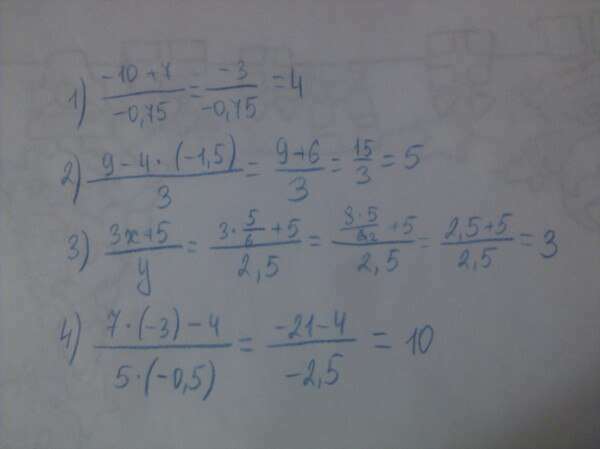 1) (-10+7)/(-0,75) = (-3)/(-0,75) = 4
2) (9-4·(-1,5))/3 = (9+6)/3 = 15/3 = 5
3) (3x+5)/y = (3·5/6+5)/2,5 = (3·5/6 2+5)/2,5 = (2,5+5)/2,5 = 3
4) (7·(-3)-4)/(5·(-0,5)) = (-21-4)/(-2,5) = 10